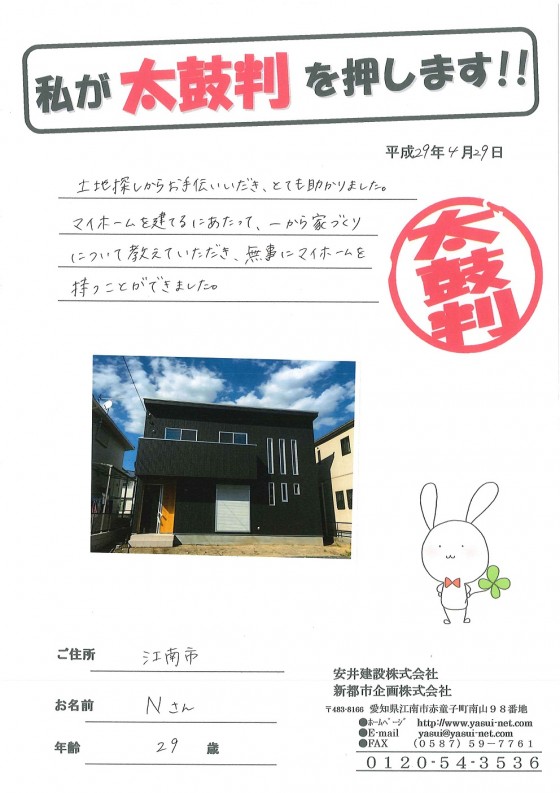 私が太鼓判を押します!!
平成29年4月29日
土地探しからお手伝いいだき、とても助かりました。
マイホームを建てるにあたって、一から家づくり
について教えていただき、無事にマイホームを
持つことができました。
太鼓判
ご住所 江南市
お名前 Nさん
年齢 29 歳
安井建設株式会社
新都市企画株式会社
〒483-8166 愛知県江南市赤童子町南山98番地
●ﾎｰﾑﾍﾟｰｼﾞ http://www.yasui-net.com
●E-mail yasui@yasui-net.com
●FAX (0587)59-7761
0120-54-3536